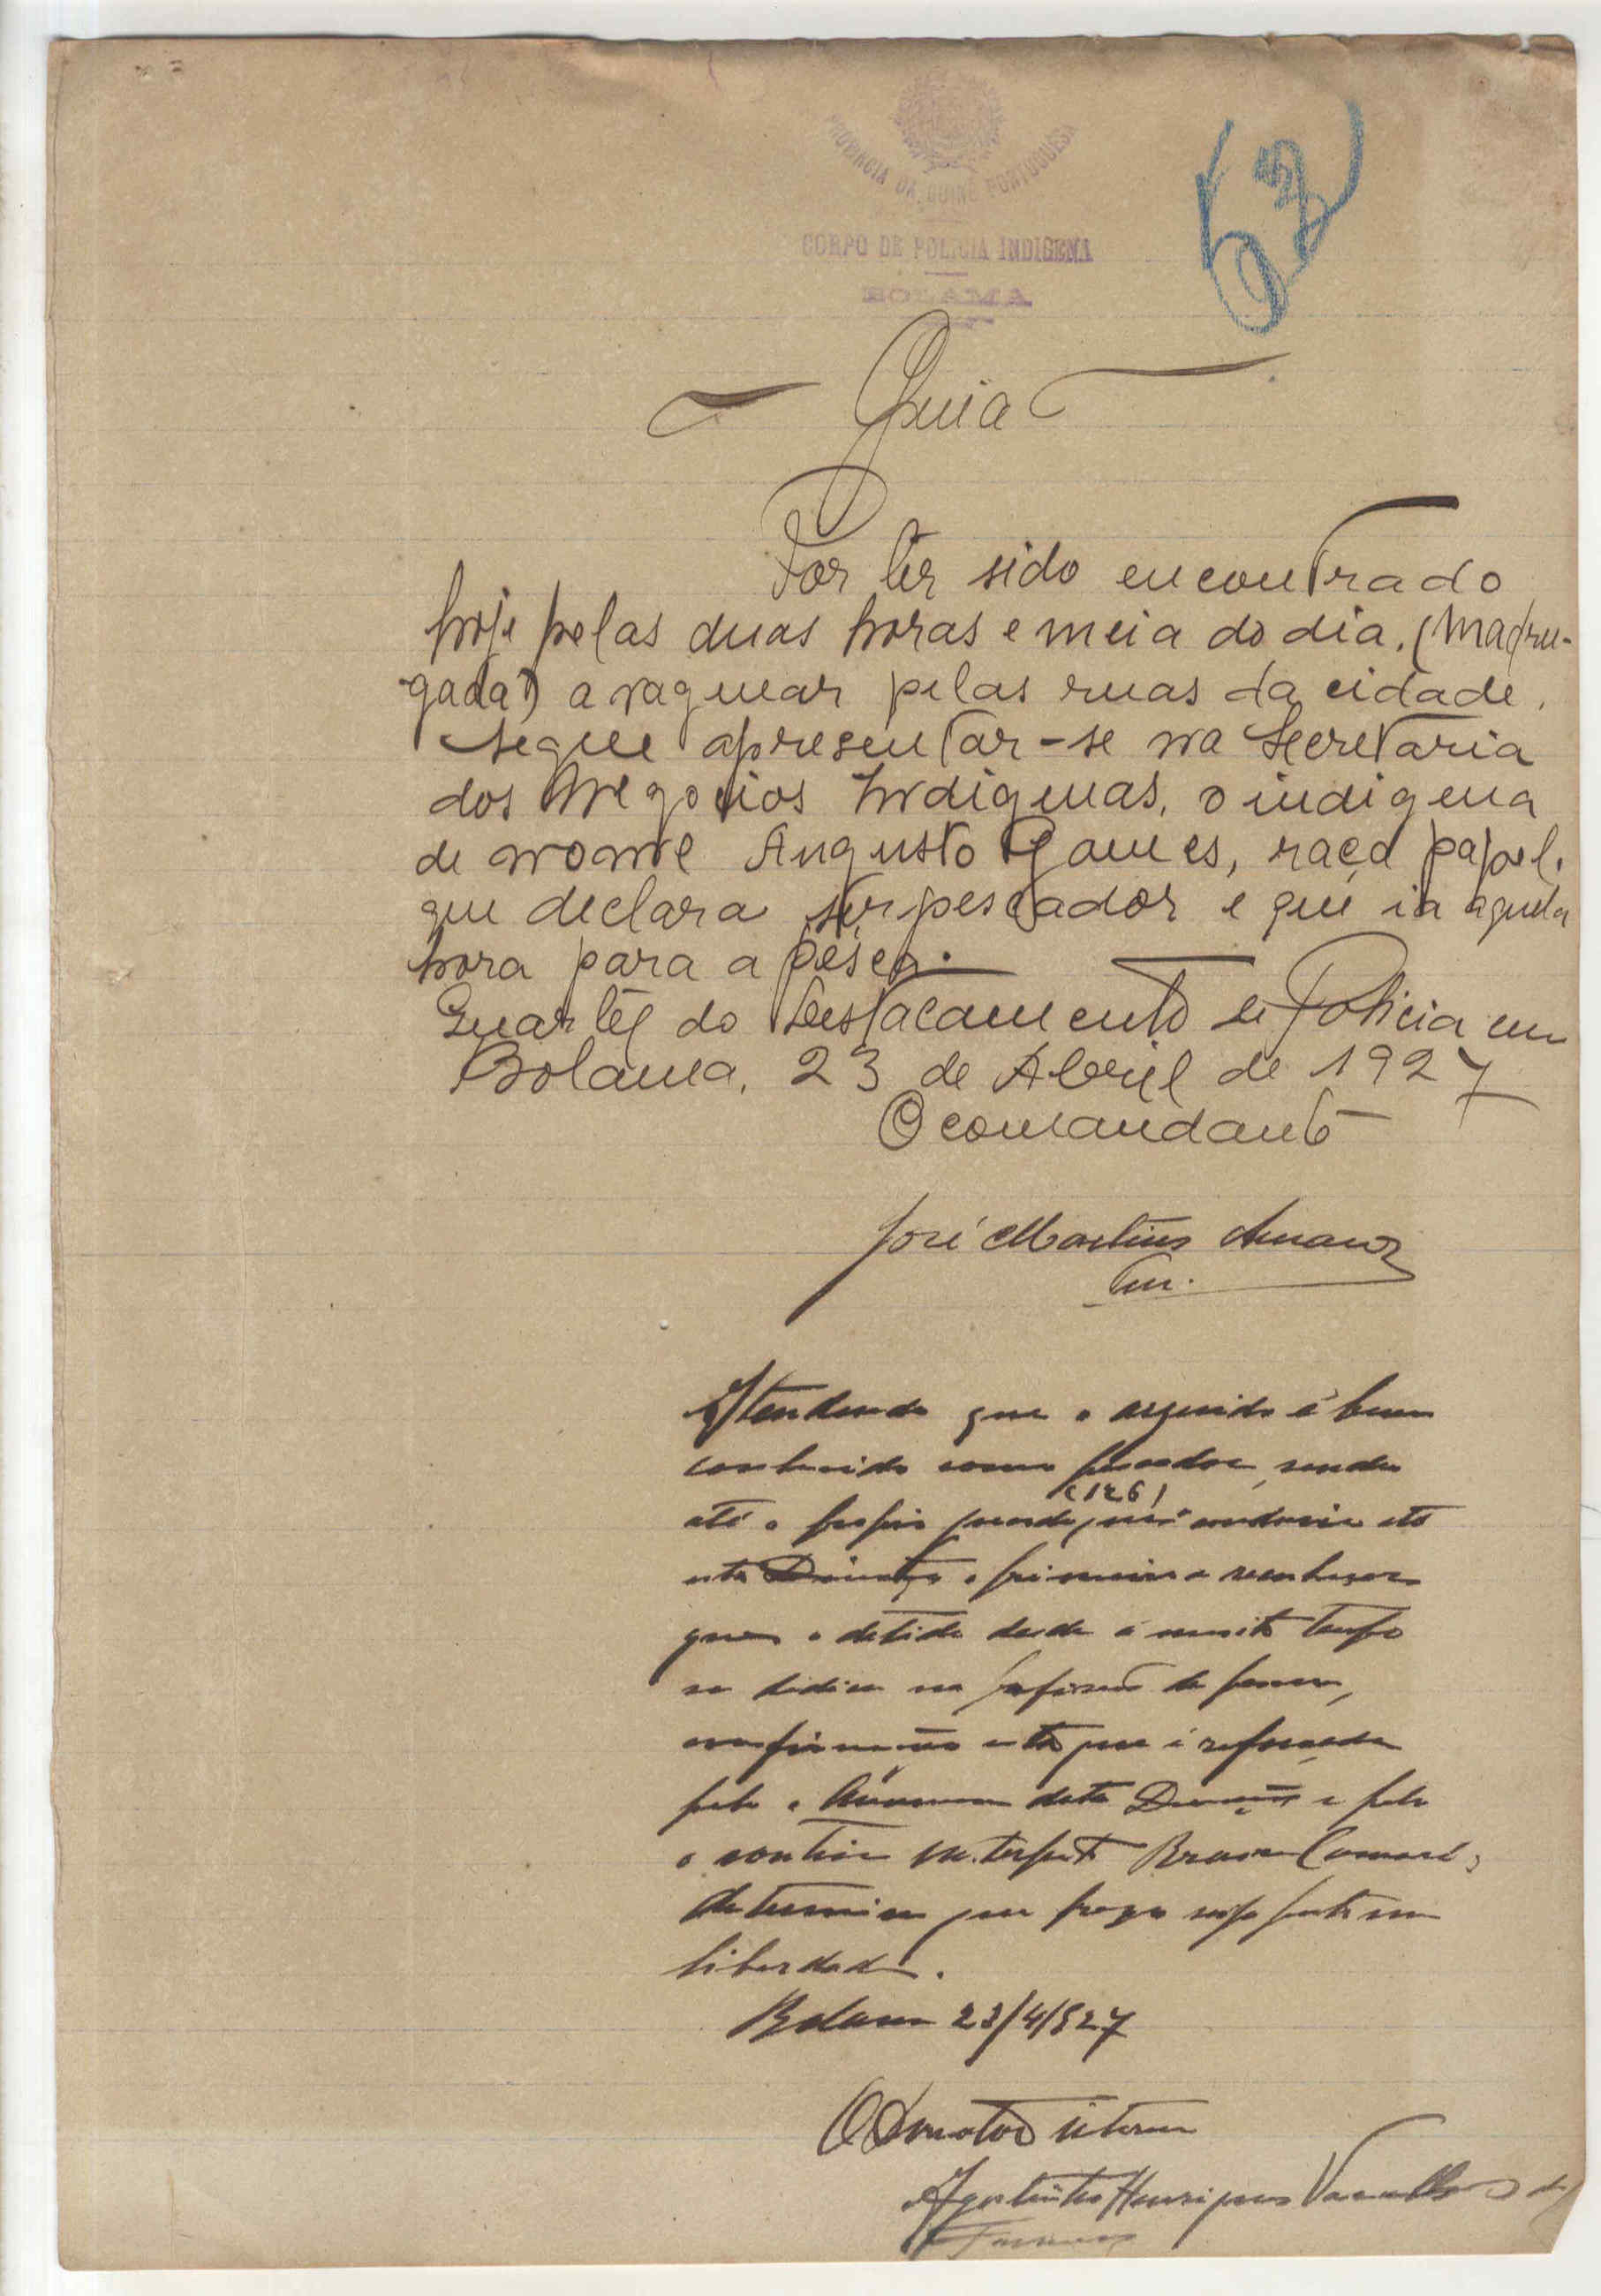 PROVINCIA DA GUINÉ PORTUGUESA
CORPO DE POLICIA INDIGENA
BOLAMA
53
Guia
Por ter sido encontrado
hoje pelas duas horas e meia do dia, (Madru-
gada) a vaguear pelas ruas da cidade,
segue apresentar-se na Secretaria
dos Negocios Indigenas, o indigena
de nome Augusto Gomes, raça papel,
que declara ser pescador e que ia aquela
hora para a pesca.
Quartel do Destacamento de Policia em
Bolama, 23 de Abril de 1927
O comandante
José Martins
Ten.
Atendendo que o arguido é bem
conhecido como pescador, sendo
(126)
até o proprio guarda, que conduziu até
esta Direcção o primeiro a reconhecer
que o detido desde á muito tempo
se dedica na profissão de pesca,
confirmação esta que é reforçada
pelo o desta Direcção e pelo
o continuo interprete Camará,
determino que seja posto em
liberdade.
Bolama 23/4/927
O Director interino
Agostinho Henriques